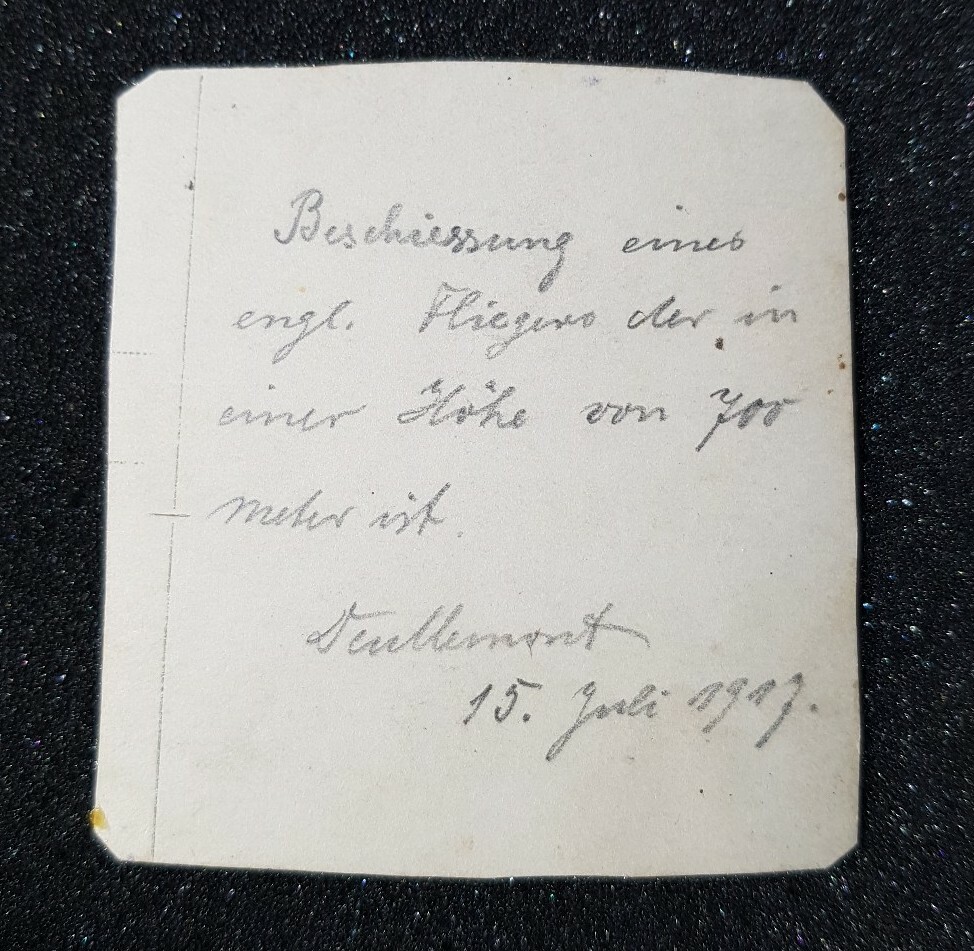 Beschiessung eines
engl. Fliegers der in
einer Höhe von 700
meter ist.
Deullemont
15. Juli 1917.